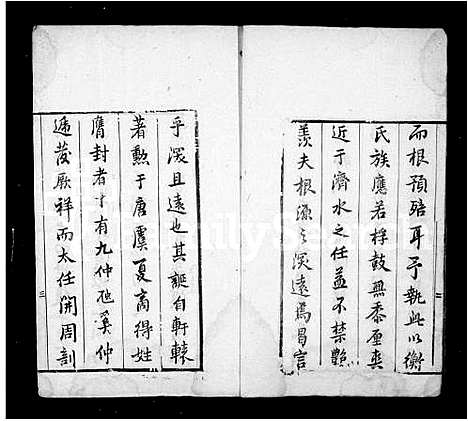 而根預踣耳予執此以衡
氏族應若桴鼓無黍厘爽
近于濟水之任益不禁艷
羨夫根源之深遠焉曷言
乎深且遠也其誕自軒轅
著勲于唐虞夏商得姓
膺封者十有九仲虺奚仲
遞發厥祥而太任開周剖
三
FamilySearch